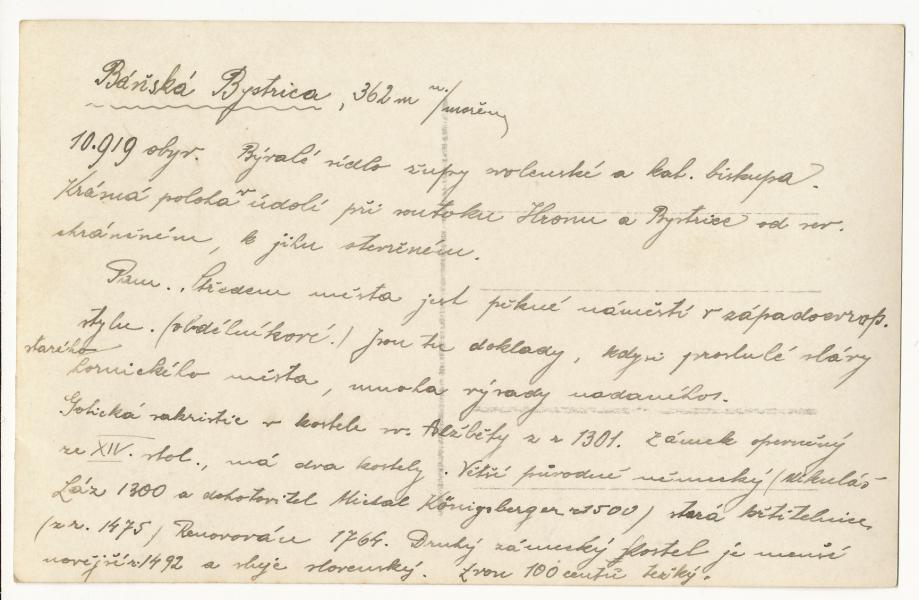 Báňská Bystrica, 362 m n/mořem,
10.919 obyv. Bývalé sídlo župy zvolenské a kat. biskupa.
Krásná poloha v údolí při soutoku Hronu a Bystrice od sev.
chráněném, k jihu otevřeném.
Pam. Středem města jest pěkné náměstí v západoevrop.
stylu. (obdélníkové.) Jsou tu doklady, kdysi proslulé slávy
starého
hornického města, mnoha výsady nadaného.
Gotická sakristie v kostele sv. Alžběty z r 1301. Zámek opevněný
ze XIV. stol., má dva kostely. Větší původně německý (Mikuláš
Láz 1300 a dohotovitel Michal Königsberger r 1500) stará křtitelnice
(z r. 1475) Renovován 1764. Druhý zámecký kostel je menší
novější r. 1492 a sluje slovenský. Zvon 100 centů těžký.